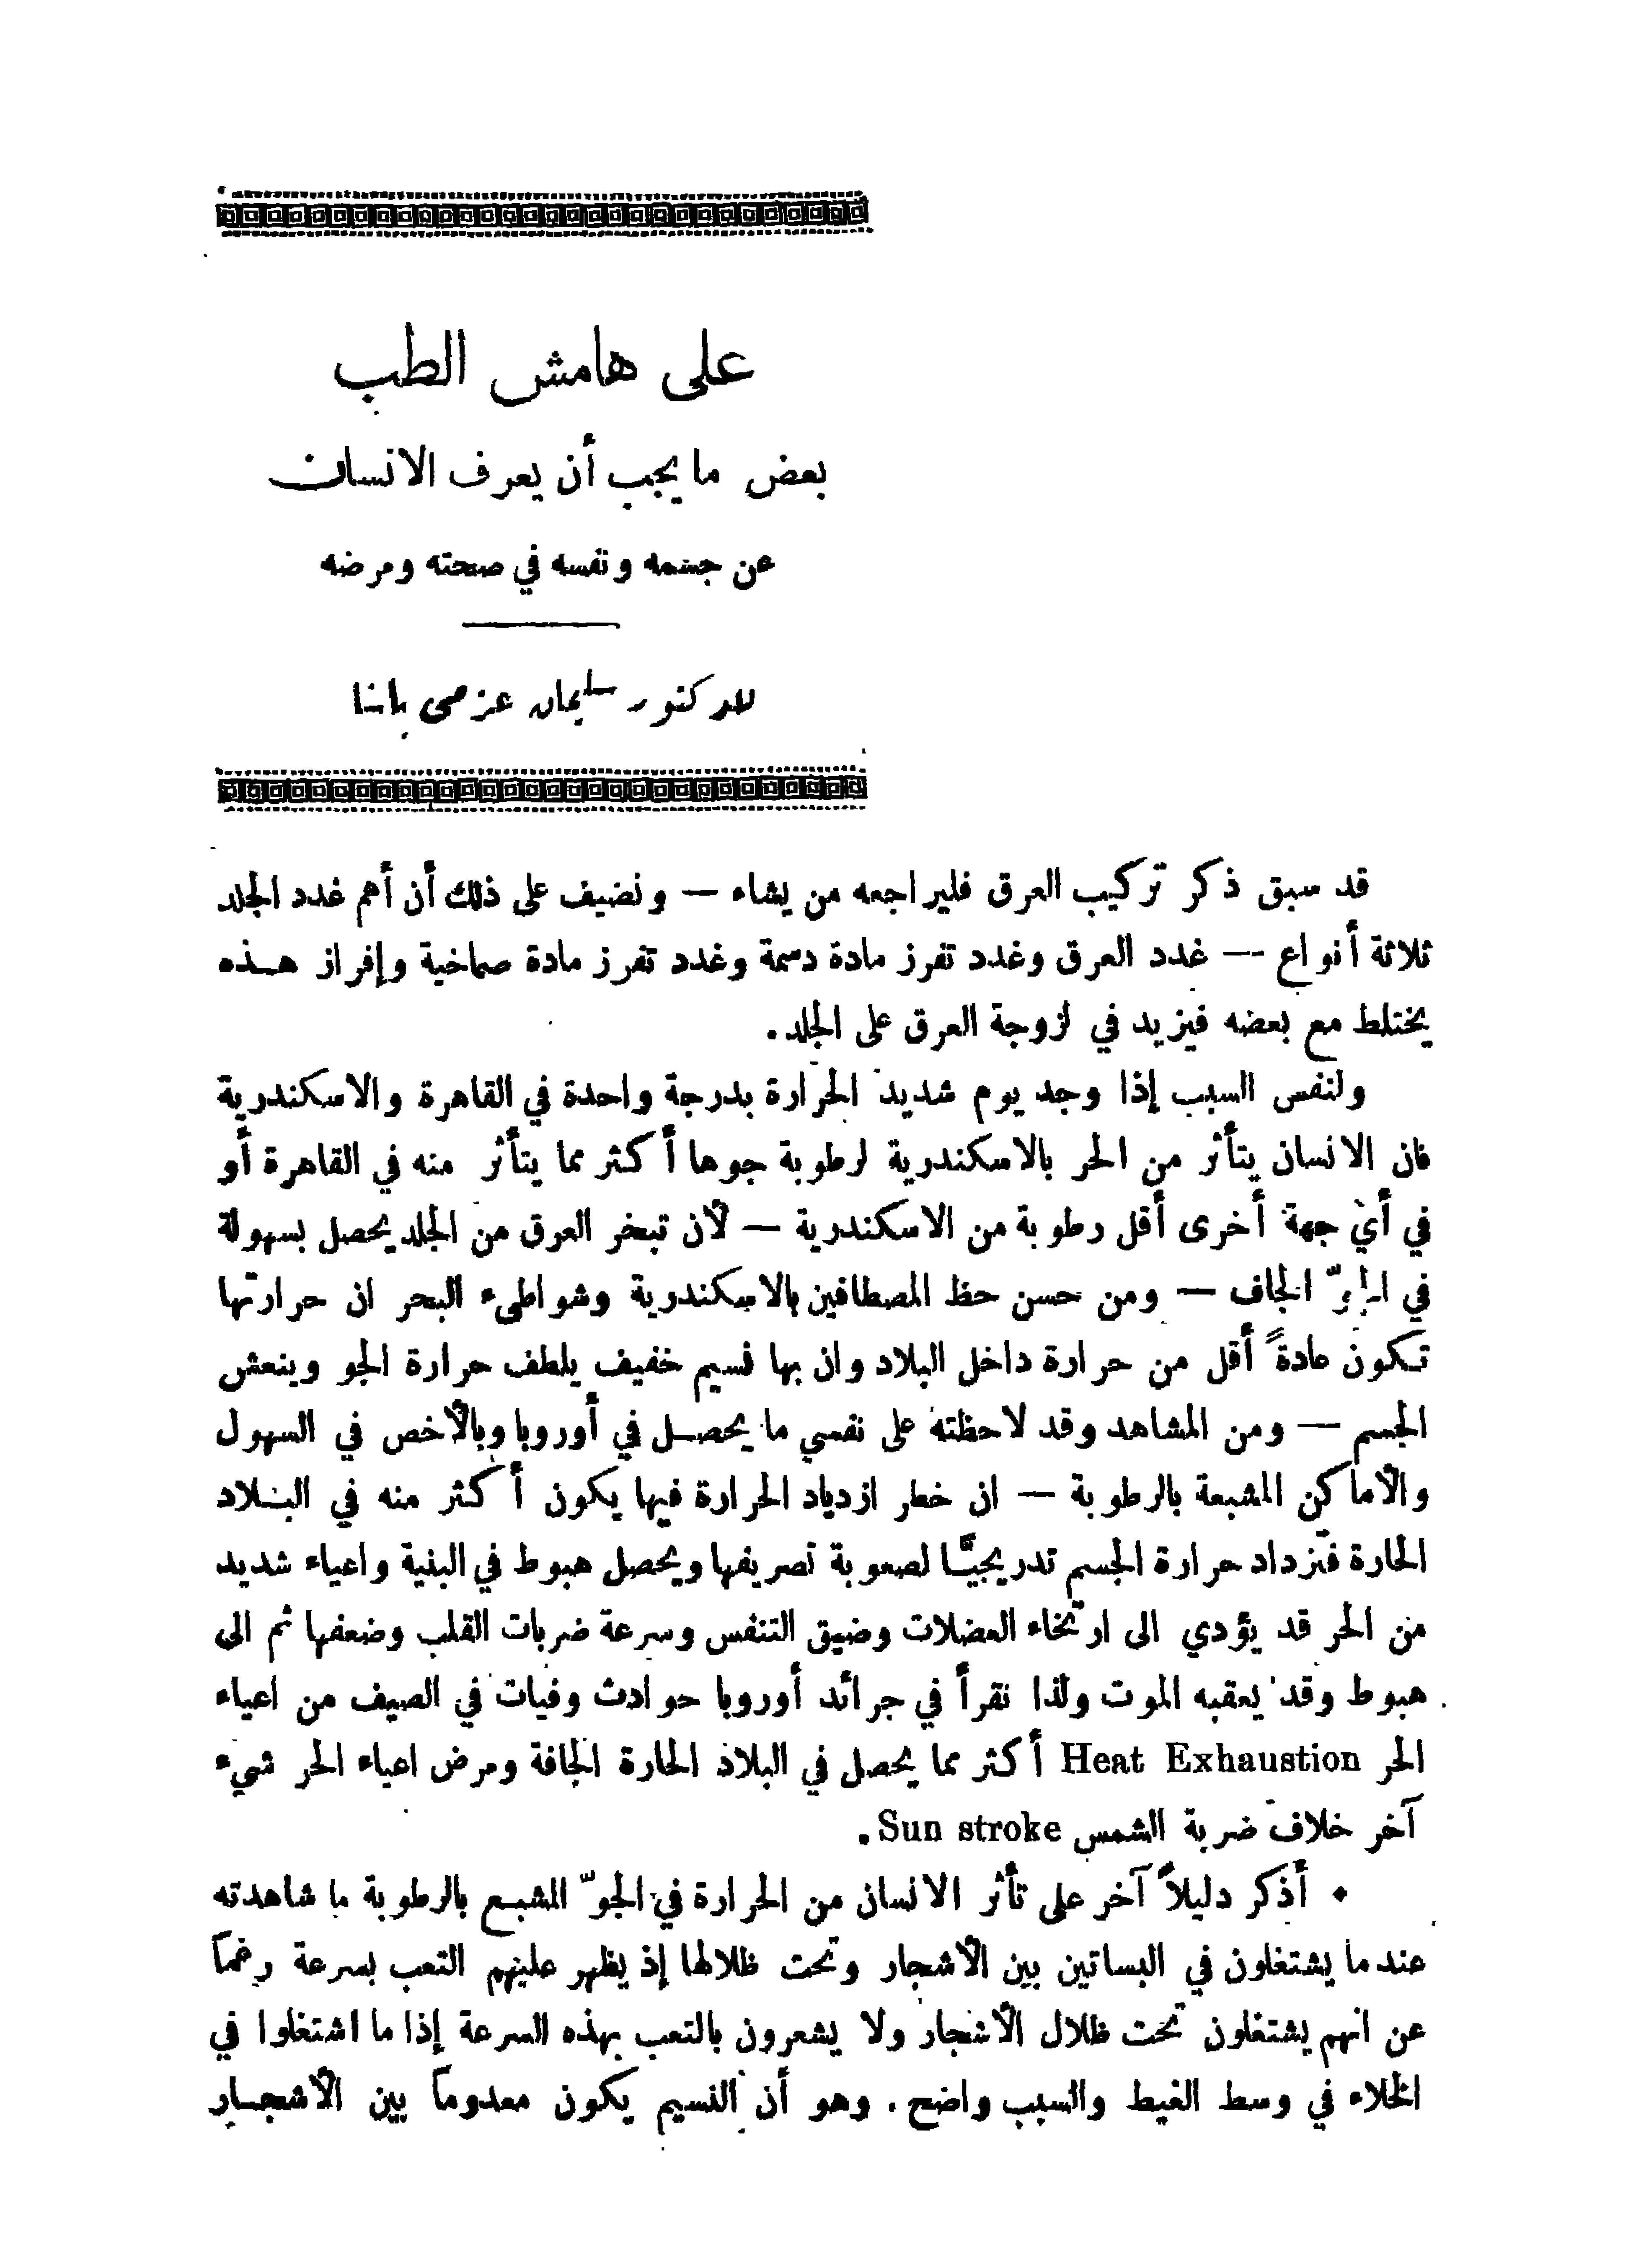 على هامش الطب
بعض ما يجب أن يعرف الانسان
عن جسمه ونفسه في صحته ومرضه
للدكتور سليمان عزمى باشا
قد سبق ذكر تركيب العرق فليراجعه من يشاء — ونضيف على ذلك أن أهم غدد الجلد
ثلاثة أنواع — غدد العرق وغدد تفرز مادة دسمة وغدد تفرز مادة صماخية وإفراز هذه
يختلط مع بعضه فيزيد في لزوجة العرق على الجلد.
ولنفس السبب إذا وجد يوم شديد الحرارة بدرجة واحدة في القاهرة والاسكندرية
فان الانسان يتأثر من الحر بالاسكندرية لرطوبة جوها أكثر مما يتأثر منه في القاهرة أو
في أي جهة أخرى أقل رطوبة من الاسكندرية — لأن تبخر العرق من الجلد يحصل بسهولة
في الجوّ الجاف — ومن حسن حظ المصطافين بالاسكندرية وشواطىء البحر ان حرارتها
تكون عادةً أقل من حرارة داخل البلاد وان بها نسيم خفيف يلطف حرارة الجو وينعش
الجسم — ومن المشاهد وقد لاحظته على نفسي ما يحصل في أوروبا وبالأخص في السهول
والأماكن المشبعة بالرطوبة — ان خطر ازدياد الحرارة فيها يكون أكثر منه في البلاد
الحارة فتزداد حرارة الجسم تدريجيًّا لصعوبة تصريفها ويحصل هبوط في البنية واعياء شديد
من الحر قد يؤدي الى ارتخاء العضلات وضيق التنفس وسرعة ضربات القلب وضعفها ثم الى
هبوط وقد يعقبه الموت ولذا نقرأ في جرائد أوروبا حوادث وفيات في الصيف من اعياء
الحر Heat Exhaustion أكثر مما يحصل في البلاد الحارة الجافة ومرض اعياء الحر شيء
آخر خلاف ضربة الشمس Sun stroke.
• أذكر دليلاً آخر على تأثر الانسان من الحرارة في الجوّ المشبع بالرطوبة ما شاهدته
عند ما يشتغلون في البساتين بين الأشجار وتحت ظلالها إذ يظهر عليهم التعب بسرعة رغماً
عن انهم يشتغلون تحت ظلال الأشجار ولا يشعرون بالتعب بهذه السرعة إذا ما اشتغلوا في
الخلاء في وسط الغيط والسبب واضح. وهو أن النسيم يكون معدوماً بين الأشجار